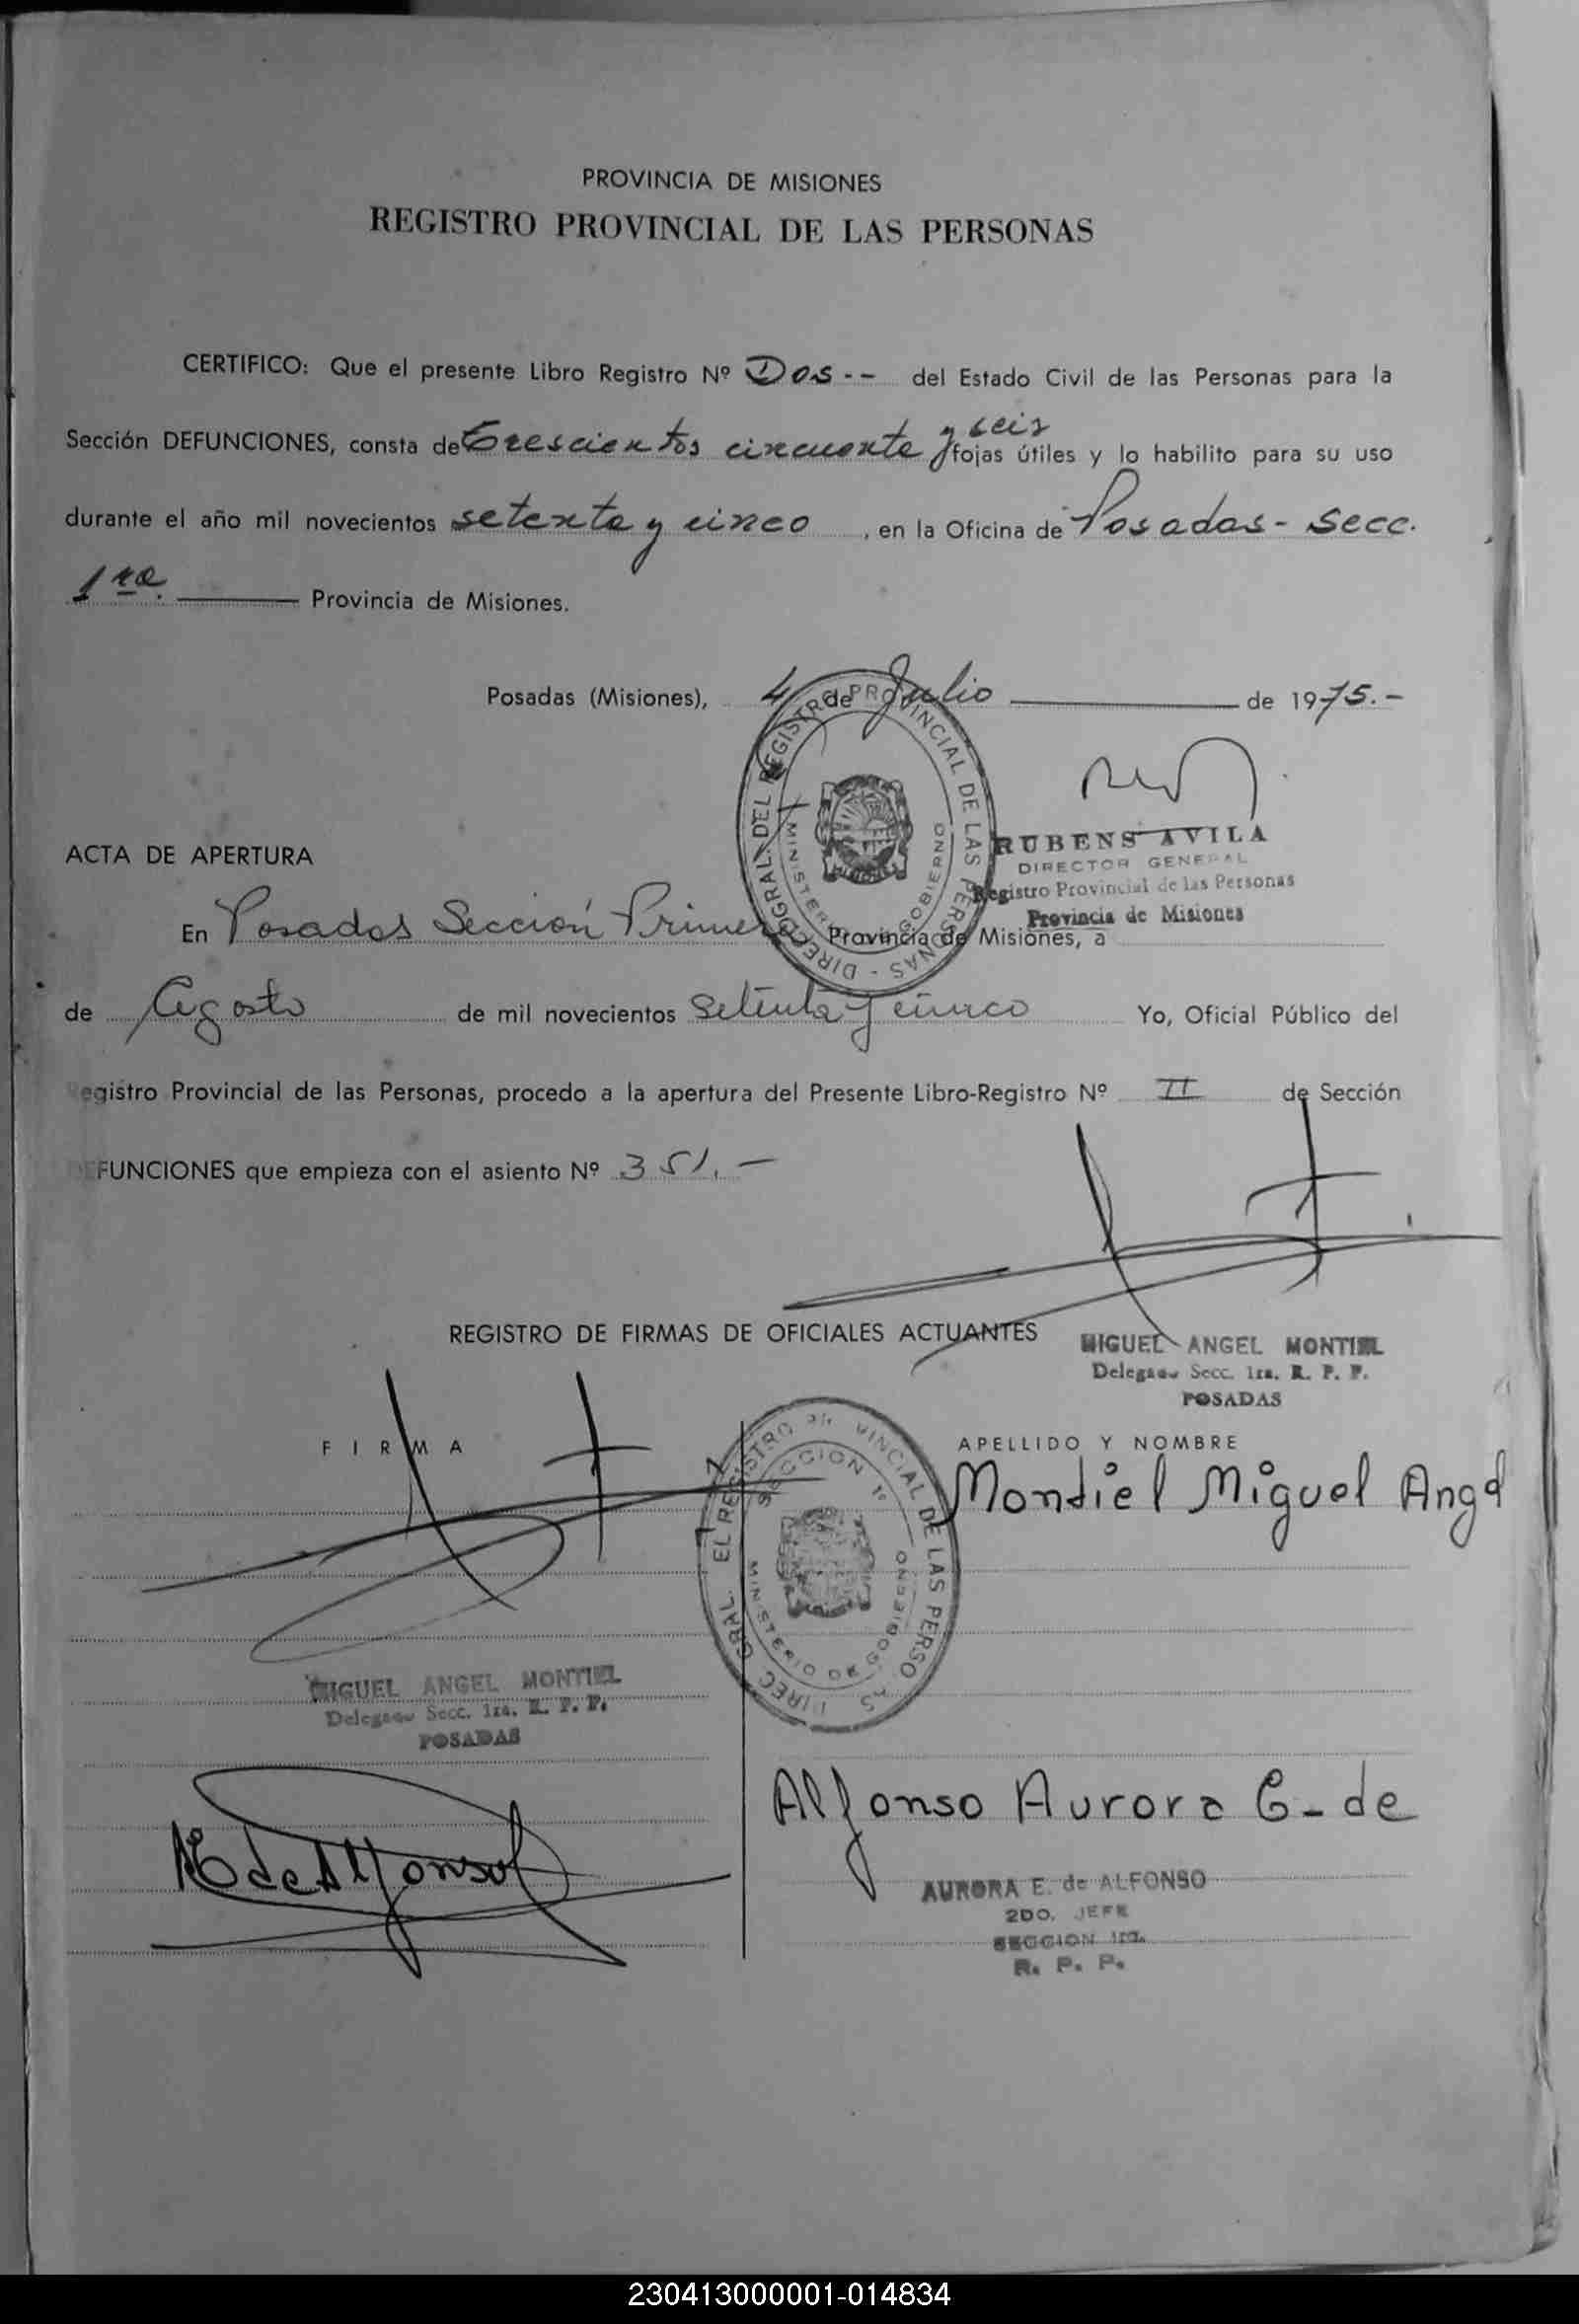 PROVINCIA DE MISIONES
REGISTRO PROVINCIAL DE LAS PERSONAS
CERTIFICO: Que el presente Libro Registro Nº Dos -- del Estado Civil de las Personas para la
Sección DEFUNCIONES, consta de Trescientos cincuenta y seis fojas útiles y lo habilito para su uso
durante el año mil novecientos setenta y cinco, en la Oficina de Posadas - Secc.
1ra. Provincia de Misiones.
Posadas (Misiones), 4 de Julio de 1975.-
DIREC. GRAL. DEL REGISTRO PROVINCIAL DE LAS PERSONAS
MINISTERIO DE GOBIERNO
RUBENS AVILA
DIRECTOR GENERAL
Registro Provincial de las Personas
Provincia de Misiones
ACTA DE APERTURA
En Posadas Sección Primera Provincia de Misiones, a
de Agosto de mil novecientos Setenta y cinco Yo, Oficial Público del
Registro Provincial de las Personas, procedo a la apertura del Presente Libro-Registro Nº II de Sección
DEFUNCIONES que empieza con el asiento Nº 351.-
REGISTRO DE FIRMAS DE OFICIALES ACTUANTES
MIGUEL ANGEL MONTIEL
Delegado Secc. 1ra. R. P. P.
POSADAS
FIRMA
APELLIDO Y NOMBRE
Montiel Miguel Angel
DIREC GRAL. EL REGISTRO PR VINCIAL DE LAS PERSO AS
SECCION 1º
MINISTERIO DE GOBIERNO
MIGUEL ANGEL MONTIEL
Delegado Secc. 1ra. R. P. P.
POSADAS
AE de Alfonso
Alfonso Aurora E- de
AURORA E. de ALFONSO
2DO. JEFE
SECCION 1ra.
R. P. P.
230413000001-014834